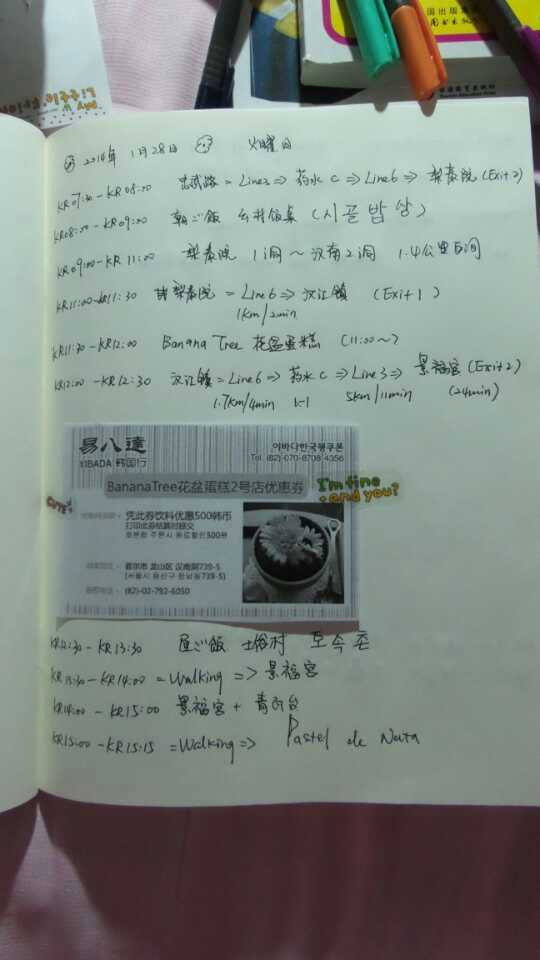 2014年 1月28日 火曜日
KR07:30 - KR08:00 忠武路 = Line3 => 药水 C => Line6 => 梨泰院 (Exit 2)
KR08:00 - KR09:00 朝ご飯 乡村饭桌 (시골밥상)
KR09:00 - KR11:00 梨泰院 1洞 ~ 汉南2洞 1.4公里
KR11:00 - KR11:30 梨泰院 = Line6 => 汉江镇 (Exit 1)
1km/2min
KR11:30 - KR12:00 Banana Tree 花盆蛋糕 (11:00~)
KR12:00 - KR12:30 汉江镇 = Line6 => 药水 C => Line3 => 景福宫 (Exit 2)
1.7km/4min 1-1 5km/11min (24min)
易八達 YIBADA 韩国行
이바다한국행쿠폰
Tel. (82)-070-8708-4356
BananaTree花盆蛋糕2号店优惠券
I'm fine and you?
CUTE
凭此券饮料优惠500韩币
打印此券结算时提交
쿠폰함 주문시 음료할인500원
首尔市 龙山区 汉南洞739-5
(서울시 용산구 한남동739-5)
(82)-02-792-6050
KR12:30 - KR13:30 昼ご飯 土俗村 토속촌
KR13:30 - KR14:00 = Walking => 景福宫
KR14:00 - KR15:00 景福宫 + 青瓦台
KR15:00 - KR15:15 = Walking => Pastel de Nata